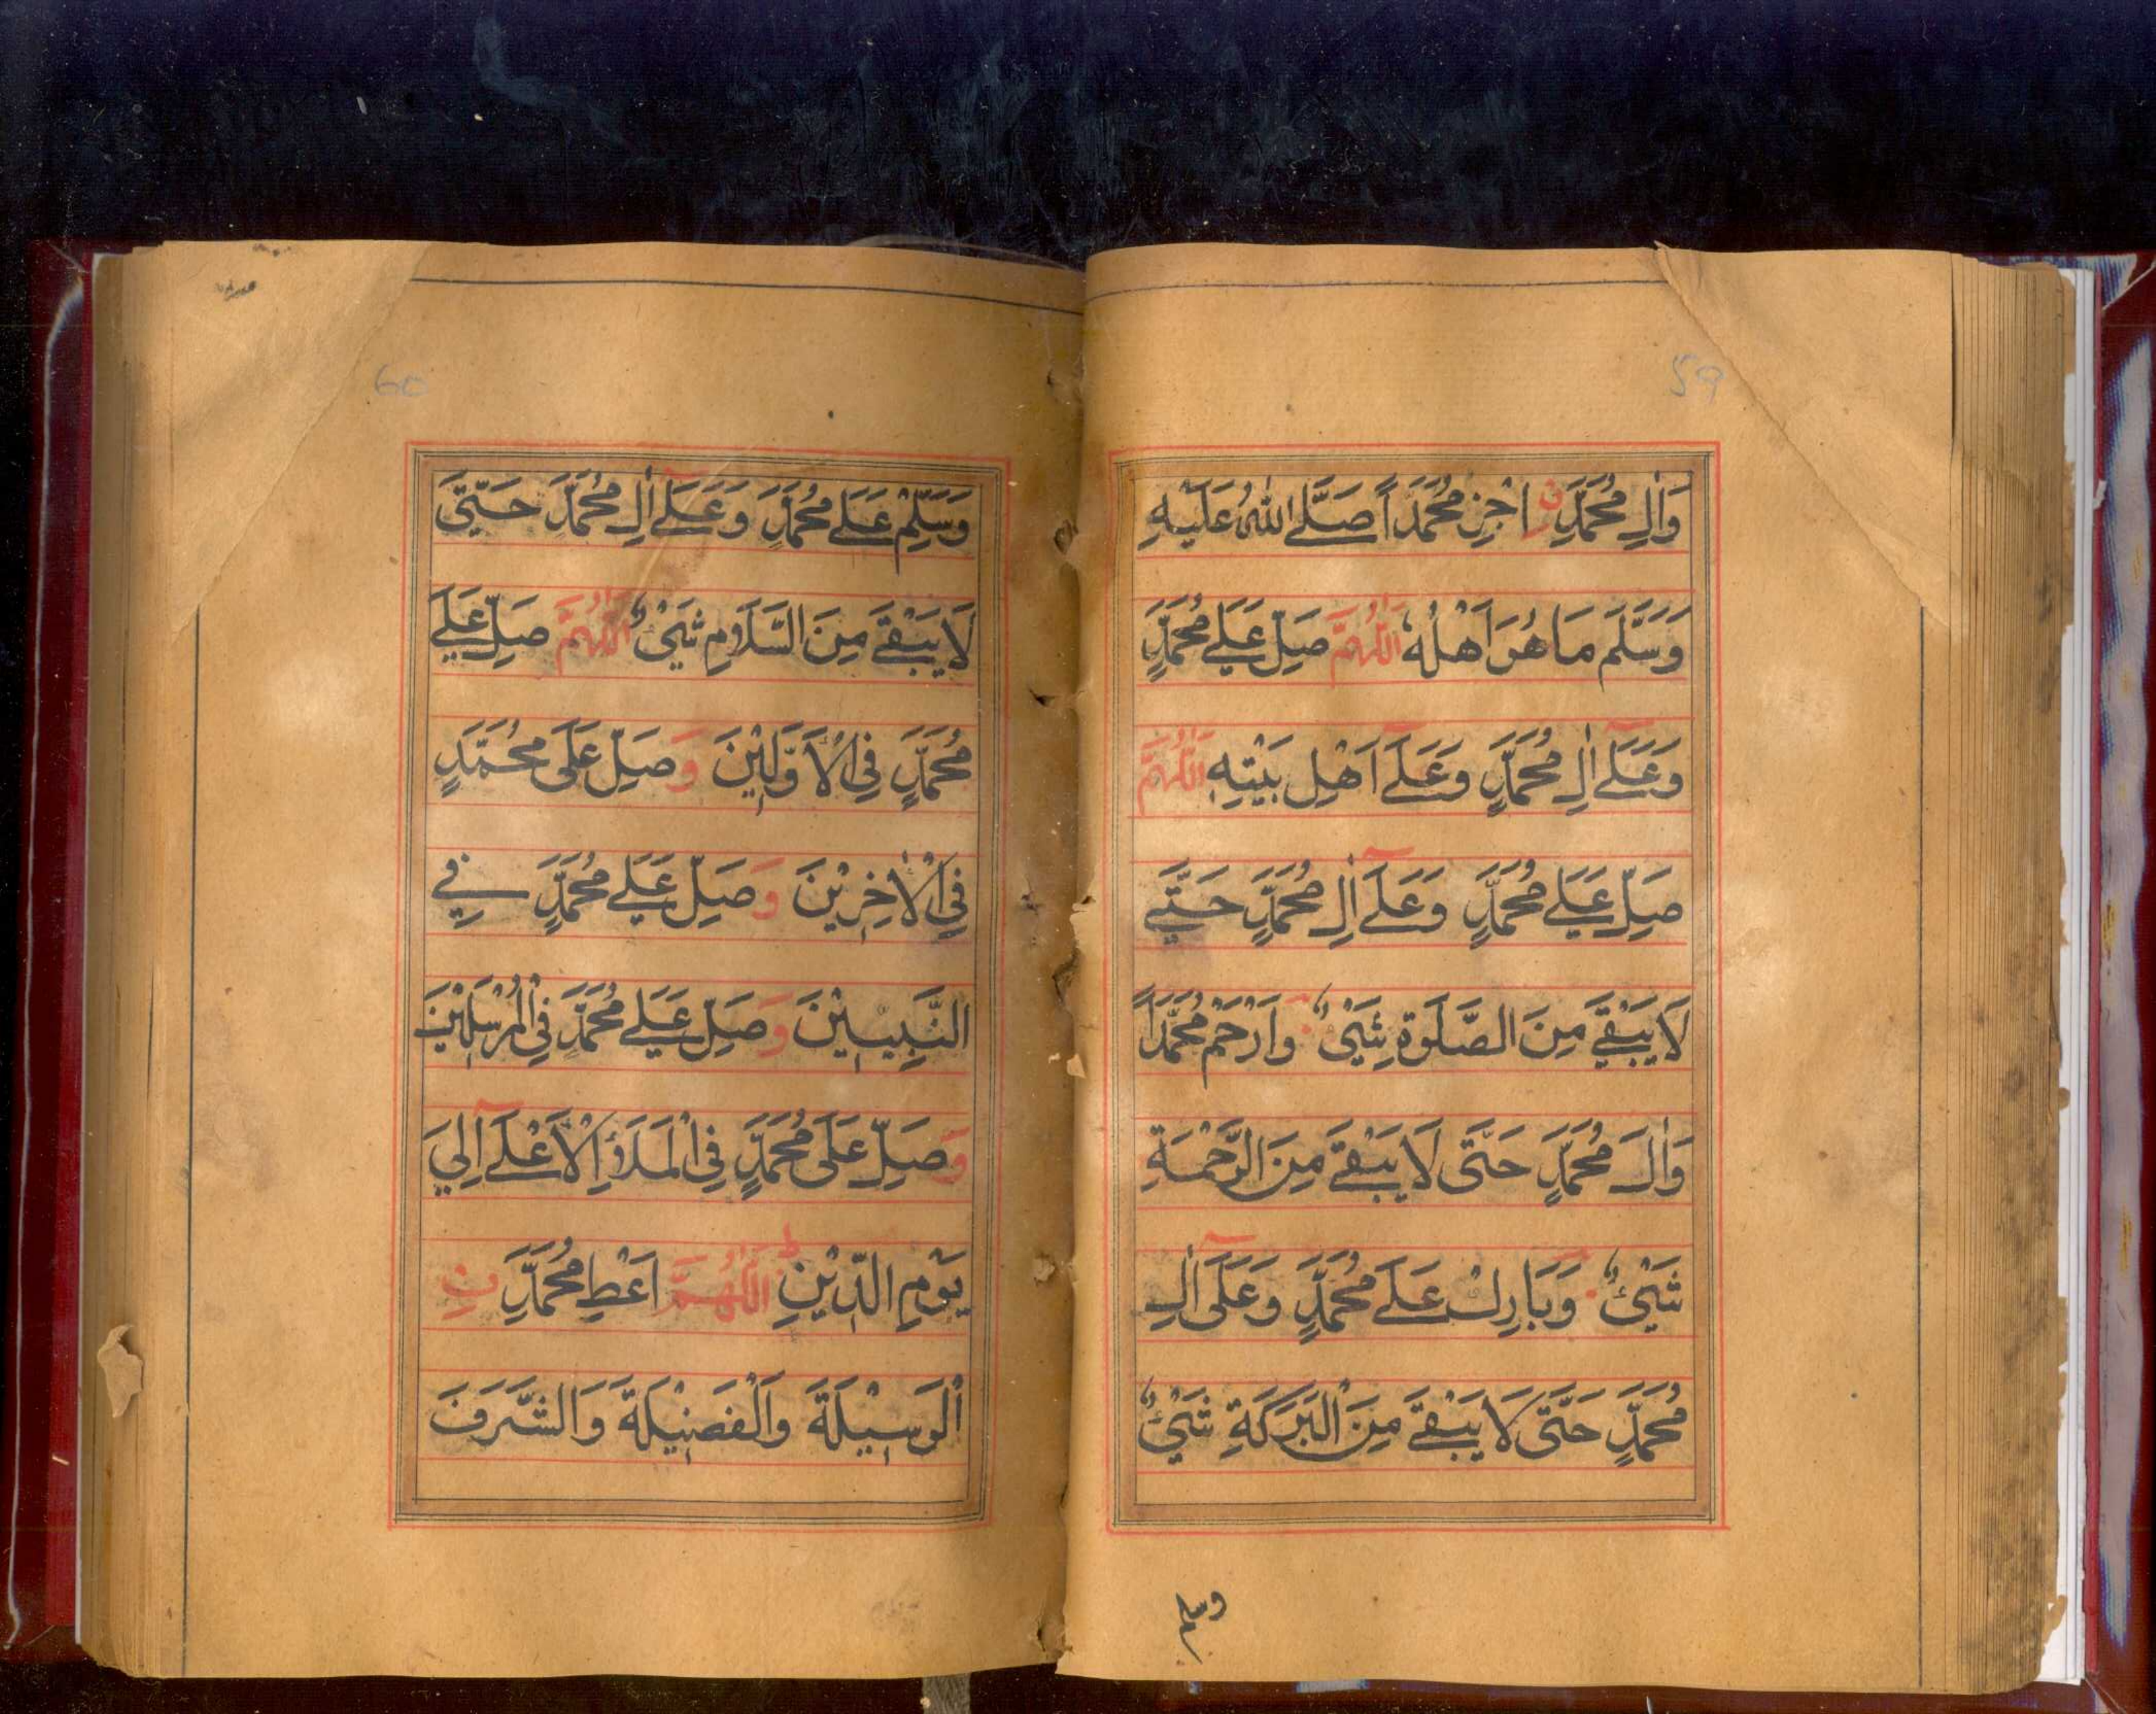 59
وَاٰلِ مُحَمَّدِنِ اجْزِ مُحَمَّدًا صَلَّے اللّٰهُ عَلَيْهِ
وَسَلَّمَ مَا هُوَ اَهْلُهٗ اَللّٰهُمَّ صَلِّ عَلٰے مُحَمَّدٍ
وَعَلٰٓے اٰلِ مُحَمَّدٍ وَعَلٰٓے اَهْلِ بَيْتِهٖ اَللّٰهُمَّ
صَلِّ عَلٰے مُحَمَّدٍ وَعَلٰٓے اٰلِ مُحَمَّدٍ حَتّٰے
لَا يَبْقٰے مِنَ الصَّلٰوةِ شَيْئٌ وَارْحَمْ مُحَمَّدًا
وَاٰلَ مُحَمَّدٍ حَتّٰى لَا يَبْقٰے مِنَ الرَّحْمَةِ
شَيْئٌ وَبَارِكْ عَلٰے مُحَمَّدٍ وَعَلٰٓى اٰلِ
مُحَمَّدٍ حَتّٰى لَا يَبْقٰے مِنَ الْبَرَكَةِ شَيْئٌ
وسلم
60
وَسَلِّمْ عَلٰے مُحَمَّدٍ وَعَلٰٓے اٰلِ مُحَمَّدٍ حَتّٰى
لَا يَبْقٰے مِنَ السَّلَامِ شَيْئٌ اَللّٰهُمَّ صَلِّ عَلٰے
مُحَمَّدٍ فِي الْاَوَّلِيْنَ وَصَلِّ عَلٰى مُحَمَّدٍ
فِي الْاٰخِرِيْنَ وَصَلِّ عَلٰے مُحَمَّدٍ فِے
النَّبِيّيْنَ وَصَلِّ عَلٰے مُحَمَّدٍ فِي الْمُرْسَلِيْنَ
وَصَلِّ عَلٰى مُحَمَّدٍ فِي الْمَلَاِ الْاَعْلٰٓے اِلٰي
يَوْمِ الدِّيْنِ ط اَللّٰهُمَّ اَعْطِ مُحَمَّدَ نِ
الْوَسِيْلَةَ وَالْفَضِيْلَةَ وَالشَّرَفَ